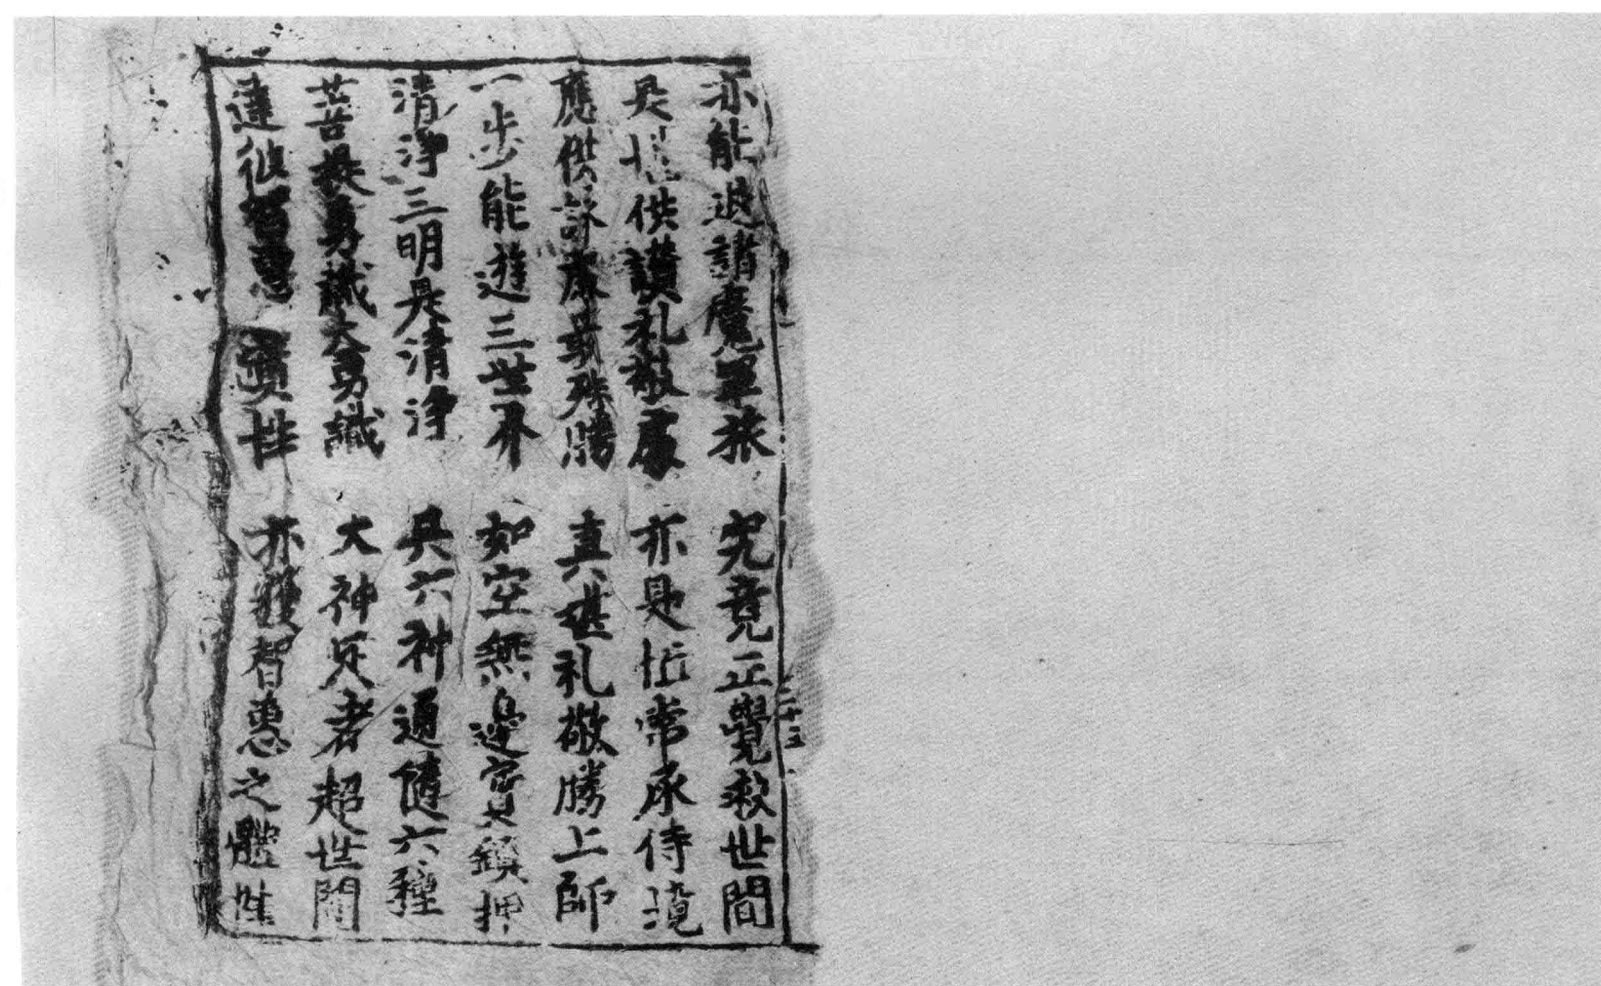 亦能退諸魔軍旅 究竟正覺救世間
是堪供讃礼敬處 亦是恒常承侍境
應供詠處最殊勝 真堪礼敬勝上師
一步能遊三世界 如空無邊實鎮押
清淨三明是清淨 具六神通隨六種
菩提勇識大勇識 大神足者超世間
達彼智惠實性 亦獲智惠之體性
二十五